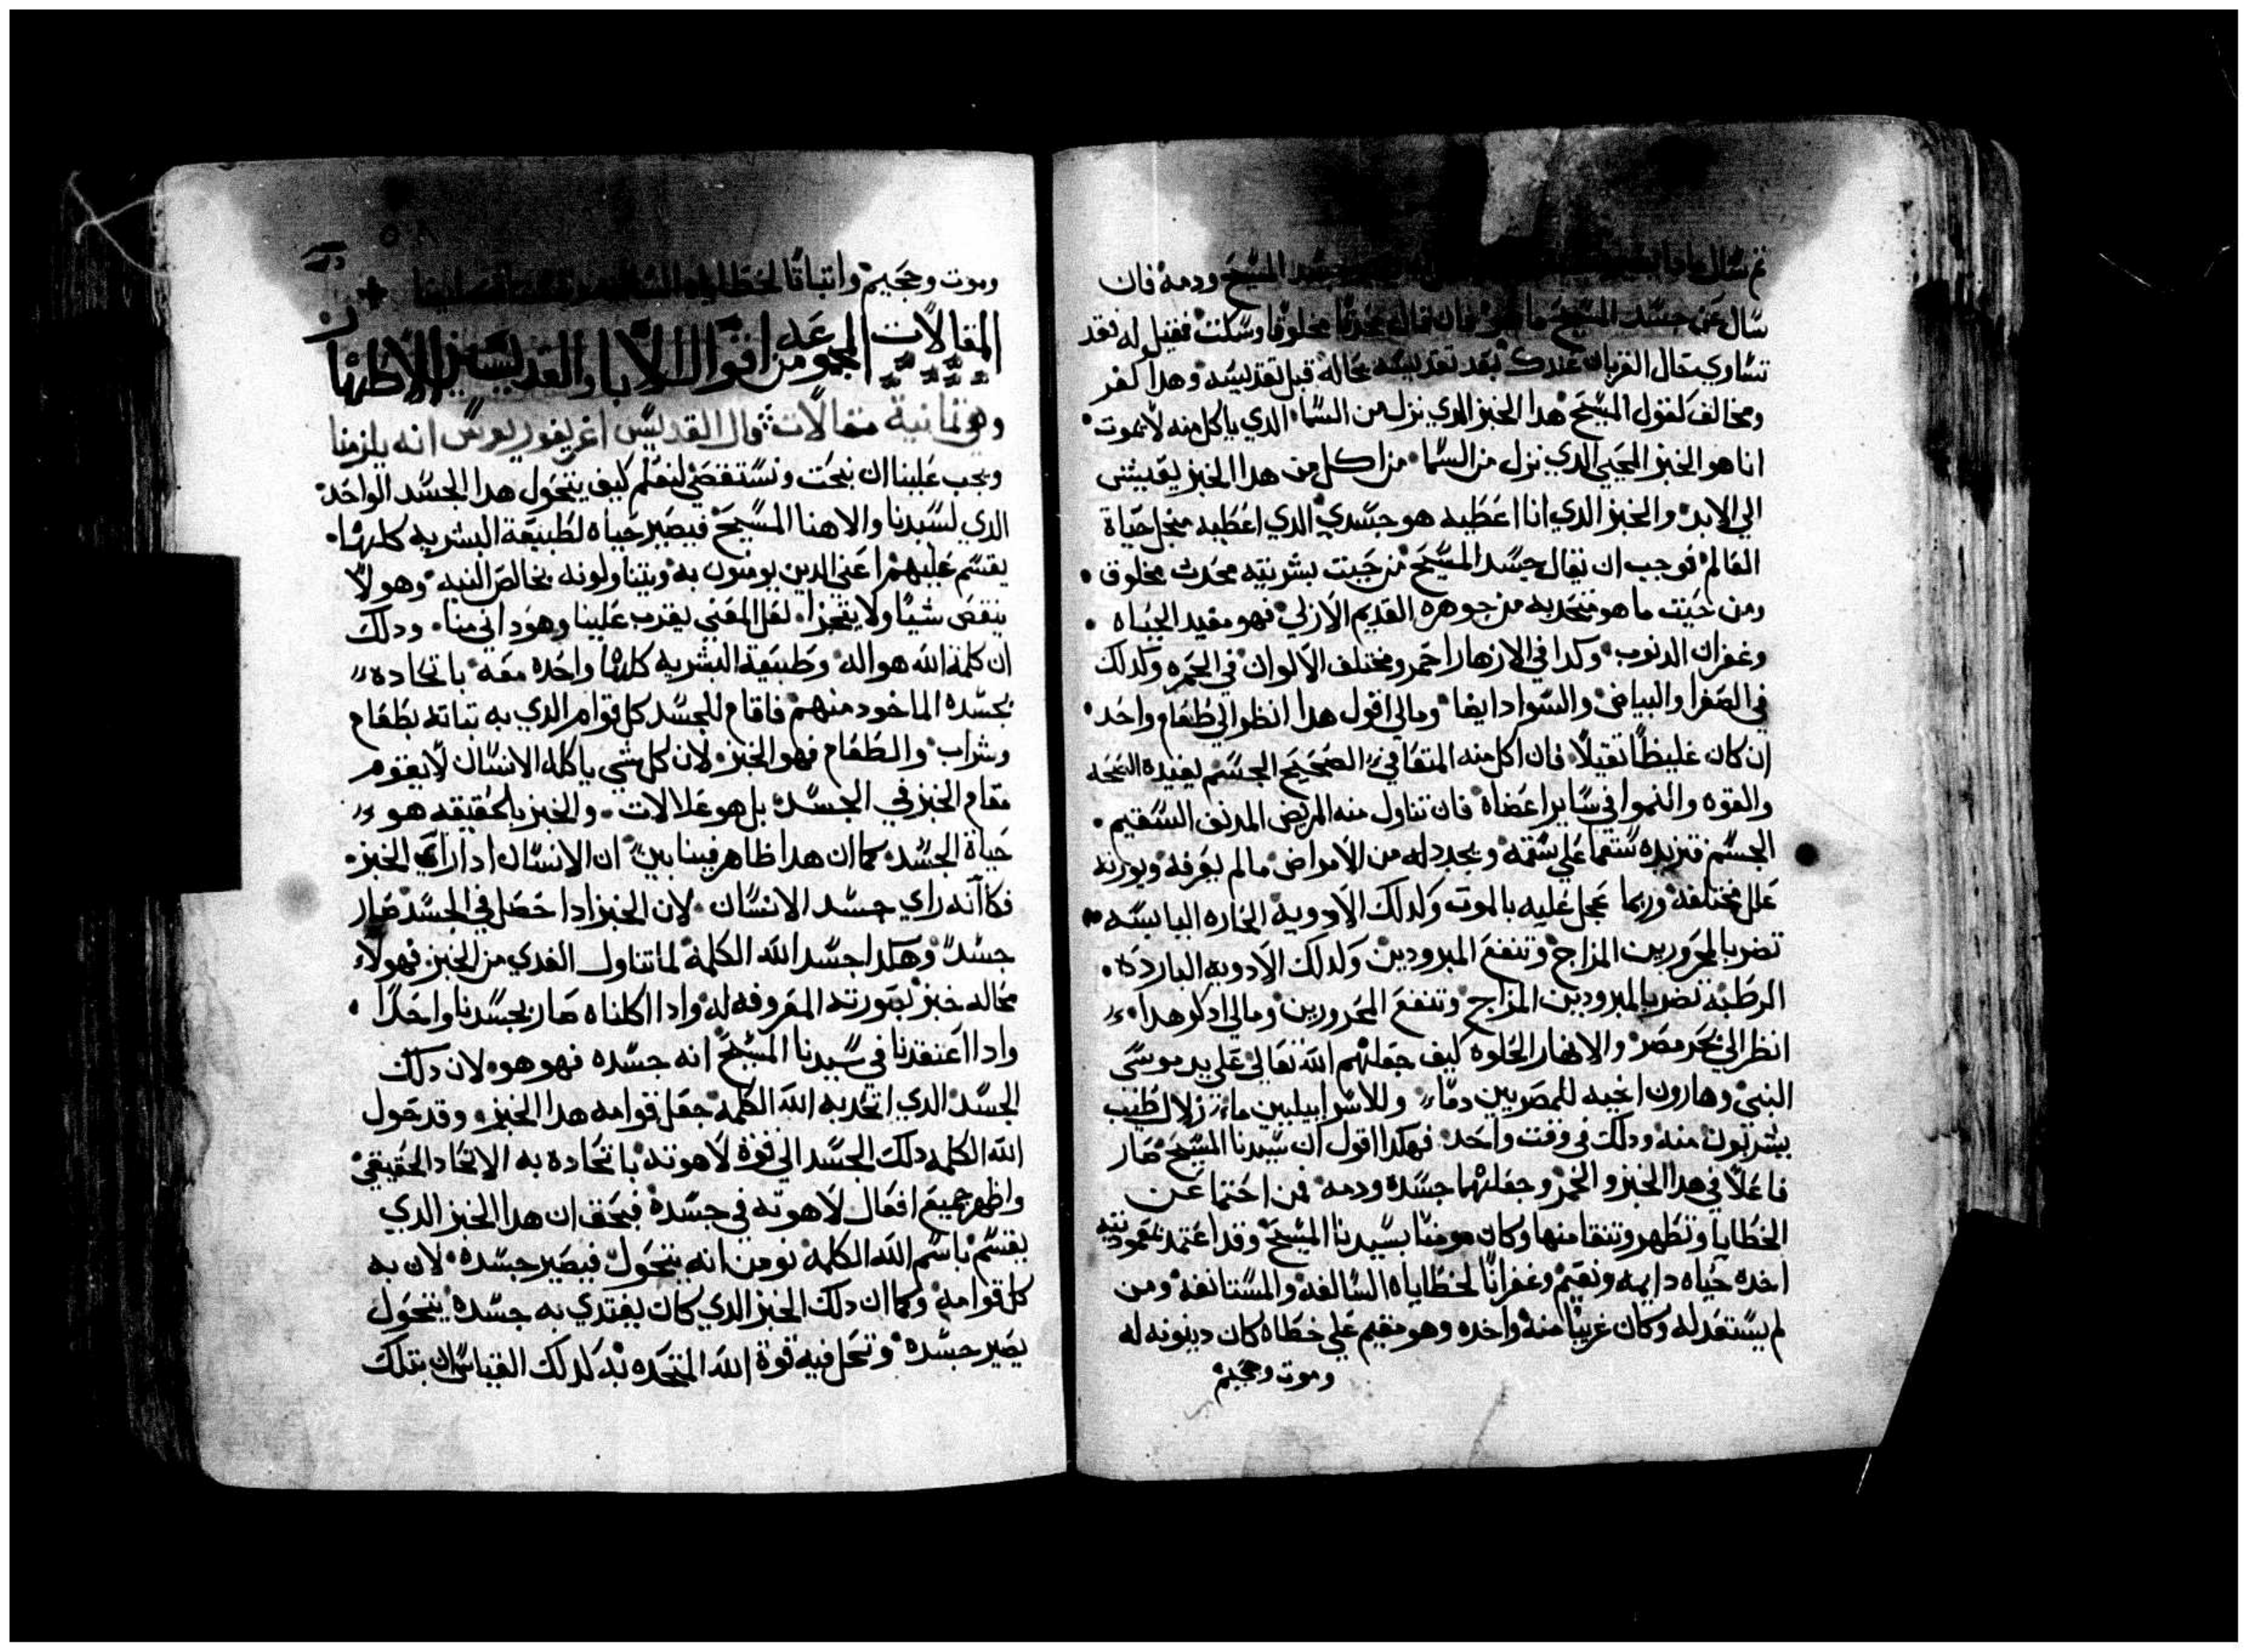 ثم سال المسيح ودمه فان
سال عن جسد المسيح ما هو فان قال محدثا مخلوقا وسكت فقيل له فقد
تساوي بحال القربان عندك بعد تقديسه بحاله قبل تقديسه وهدا كفر
ومخالف لقول المسيح هدا الخبز الدي نزل من السما الدي ياكل منه لا يموت
انا هو الخبز المحيي الدي نزل من السما من اكل من هدا الخبز يعيش
الي الابد والخبز الدي انا اعطيه هو جسدي الدي اعطيه حياة
العالم فوجب ان يقال جسد المسيح من حيت بشريته محدث مخلوق
ومن حيت ما هو متحد به من جوهره القديم الازلي فهو مفيد الحياه
وغفران الدنوب وكدا في الازهار احمر ومختلف الالوان في الحمره وكدلك
في الصفرا والبياض والسواد ايضا ومالي اقول هدا انظر الي طعام واحد
ان كان غليظا تقيلا فان اكل منه المتعافي الصحيح الجسم يفيده الصحه
والقوه والنموا في ساير اعضاه فان تناول منه المريض المدنف السقيم
الجسم فتزيده سقما علي سقمه ويجدد له من الامراض مالم يعرفه ويورته
علل مختلفه وربما عجل عليه بالموت وكدلك الادويه الحاره اليابسه
تضر بالمحرورين المزاج وتنفع المبرودين وكدلك الادويه البارده
الرطبة تضر بالمبرودين المزاج وتنفع المحرورين ومالي ادكر هدا
انظر الي بحر مصر والانهار الحلوه كيف جعلهم الله تعالي علي يد موسي
النبي وهارون اخيه للمصريين دما وللاسراييليين ما زلال طيب
يشربون منه ودلك في وقت واحد فهكدا اقول ان سيدنا المسيح صار
فاعلا في هدا الخبز والخمر وجعلهما جسده ودمه فمن احتما عن
الخطايا وتطهر وتنقا منها وكان مومنا بسيدنا المسيح وقد اعتمد بمعموديته
اخده حياه دايمه ونعيم وغفرانا لخطاياه السالفه والمستانفه ومن
لم يستعد له وكان غريبا منه واخده وهو مقيم علي خطاه كان دينونه له
وموت وجحيم
وموت وجحيم واتباتا لخطاياه السالفه
المقالات المجموعه من اقوال الابا والقديسين الاطهار
وهي تمانية مقالات قال القديس اغريغوريوس انه يلزمنا
ويجب علينا ان نبحت ونستقصي لنعلم كيف يتحول هدا الجسد الواحد
الدي لسيدنا والاهنا المسيح فيصير حياه لطبيعة البشريه كلها
يقسم عليهم اعني الدين يومنون به ويتناولونه بخالص النيه وهو لا
ينقص شيا ولا يتجزا لعل المعني يقرب علينا وهو داني منا ودلك
ان كلمة الله هو اله وطبيعة البشريه كلها واحده معه باتحاده
بجسده الماخود منهم فاقام للجسد كل قوام الدي به تباته بطعام
وشراب والطعام فهو الخبز لان كل شي ياكله الانسان لا يقوم
مقام الخبز في الجسد بل هو علالات والخبز بالحقيقه هو
حياة الجسد كما ان هدا ظاهر فينا بين ان الانسان ادا راي الخبز
فكانه راي جسد الانسان لان الخبز ادا حصل في الجسد صار
جسد وهكدا جسد الله الكلمة لما تناول الغدي من الخبز فهو لا
محاله خبز بصورته المعروفه له وادا اكلناه صار بجسدنا واحدا
وادا اعتقدنا في سيدنا المسيح انه جسده فهو هو لان دلك
الجسد الدي اتحد به الله الكلمه جعل قوامه هدا الخبز وقد حول
الله الكلمه دلك الجسد الي قوة لاهوته باتحاده به الاتحاد الحقيقي
واظهر جميع افعال لاهوته في جسده فبحق ان هدا الخبز الدي
يقسم باسم الله الكلمه نومن انه يتحول فيصير جسده لان به
كل قوامه وكما ان دلك الخبز الدي كان يغتدي به جسده يتحول
يصير جسده وتحل فيه قوة الله المتحده به كدلك القياس ان بتلك